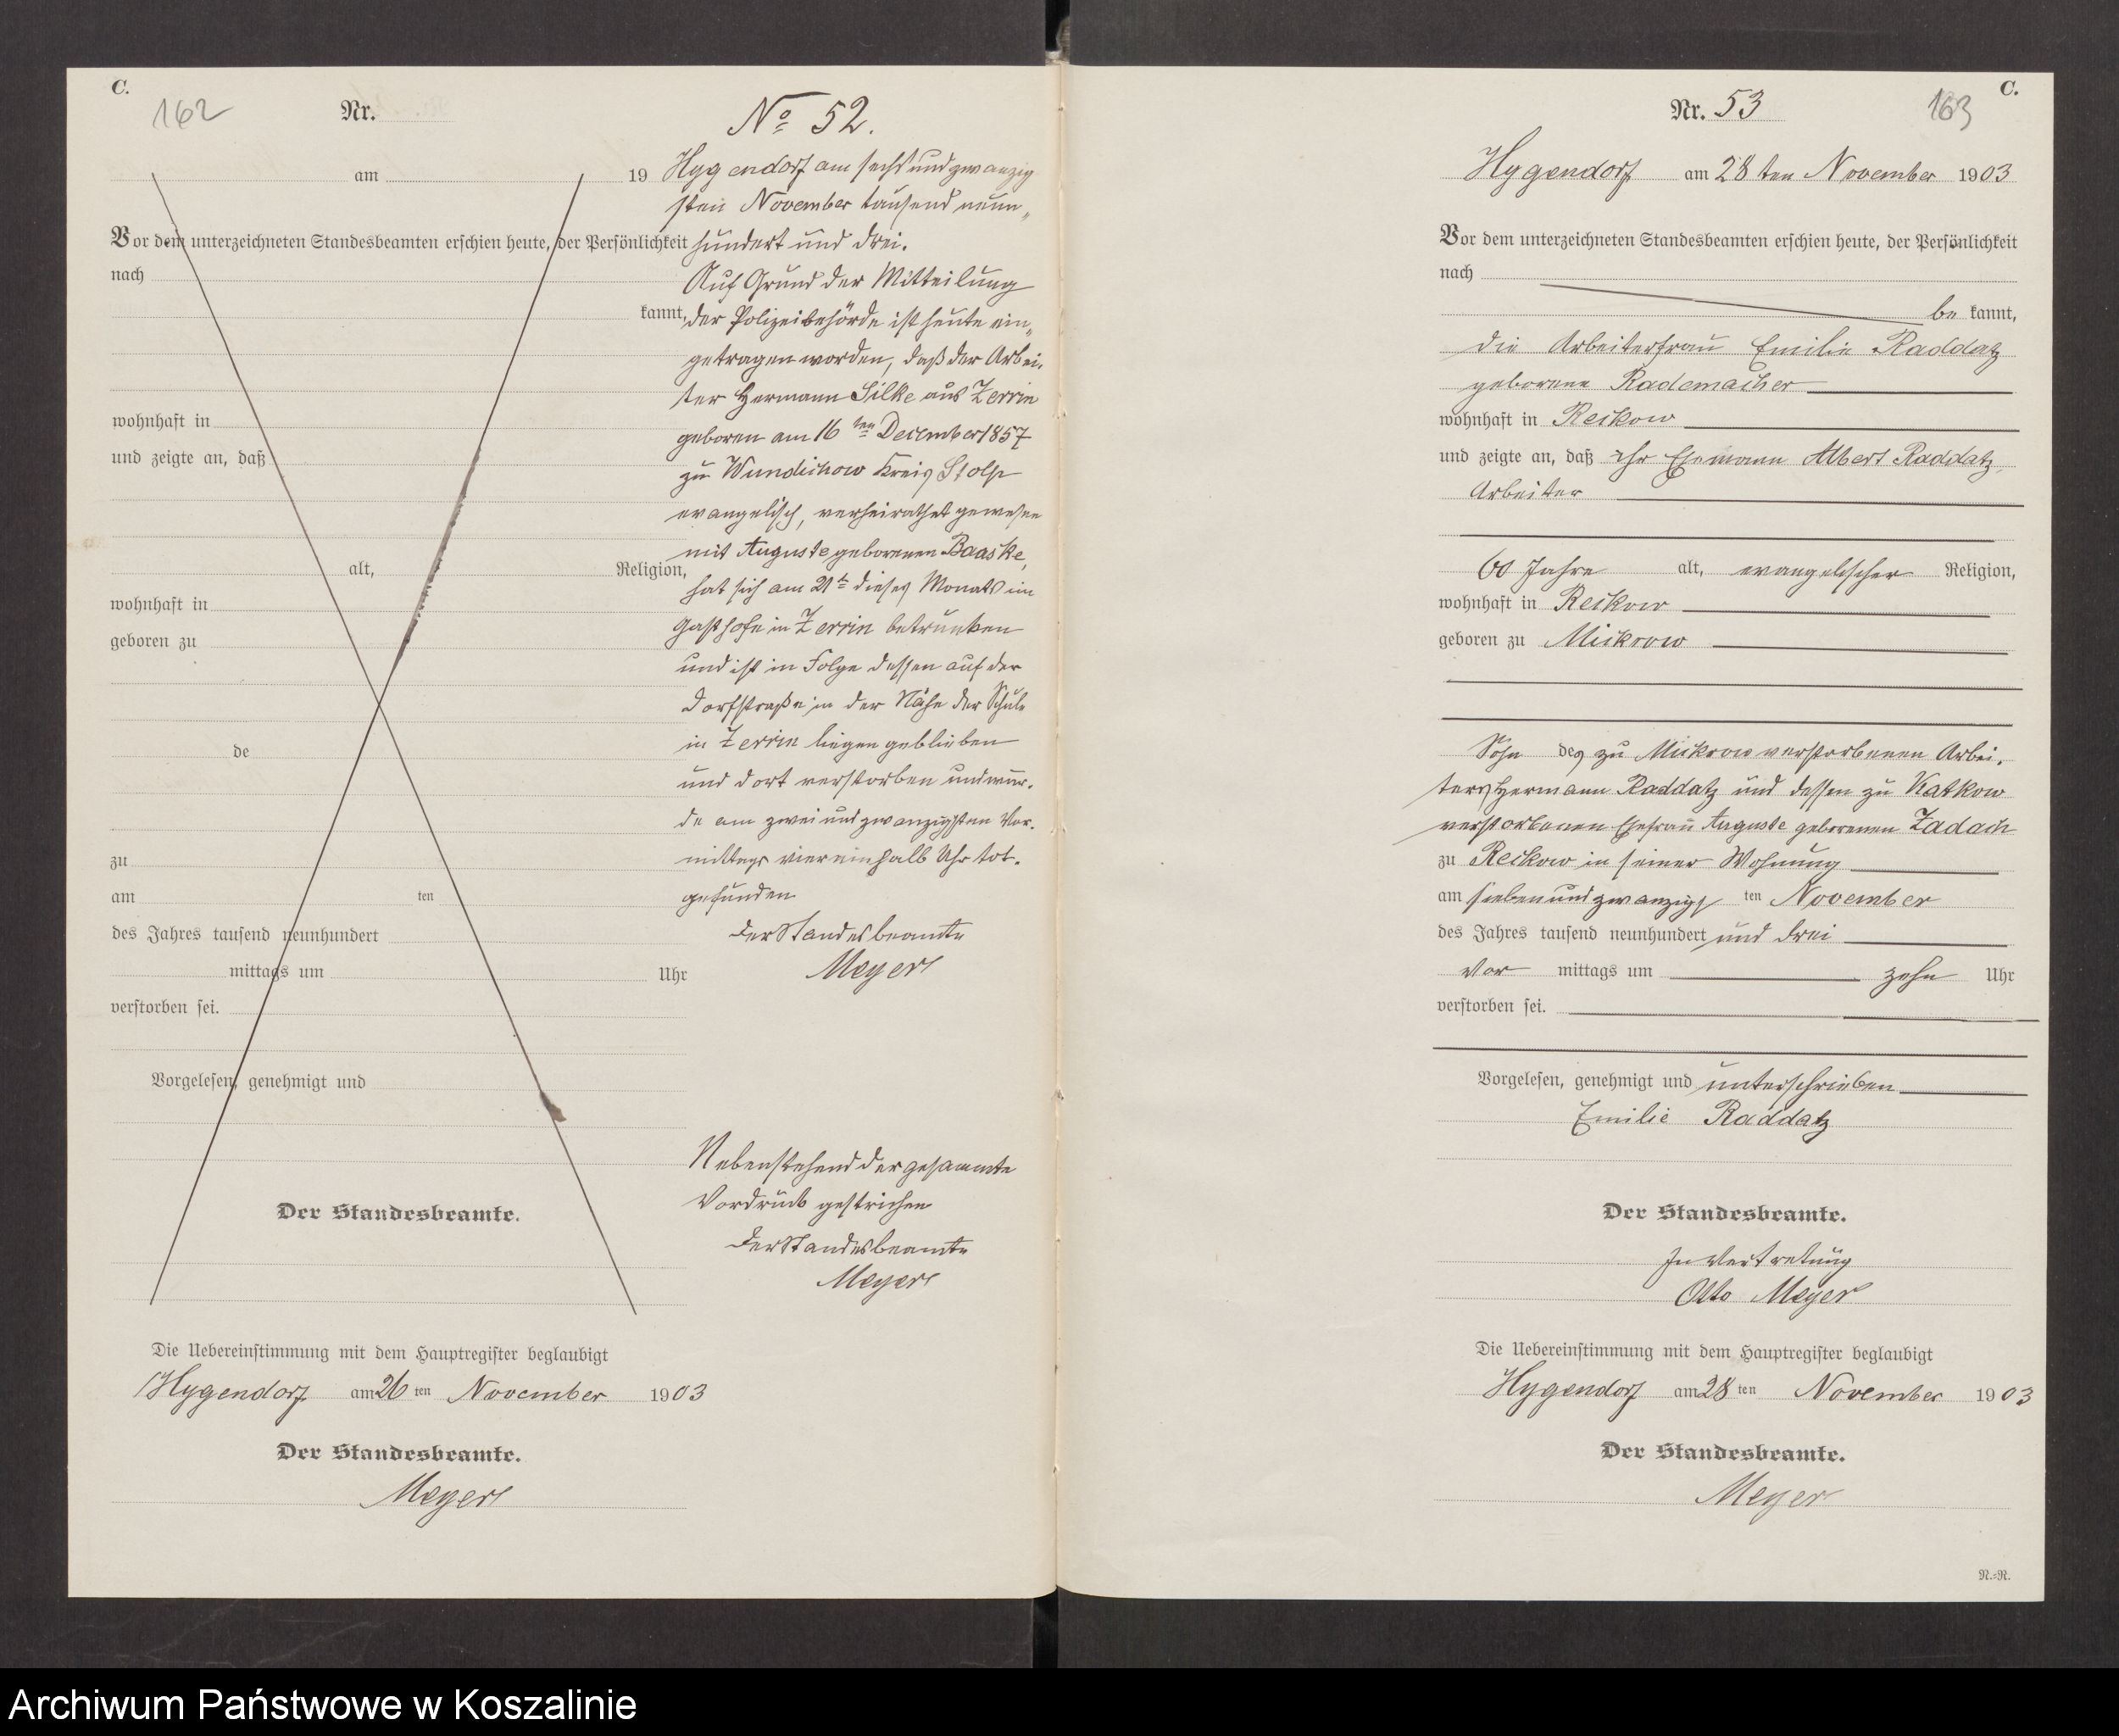 C.
162
Nr.
No 52.
am 19
Hygendorf am sechsundzwanzig
sten November tausend neun„
Vor dem unterzeichneten Standesbeamten erschien heute, der Persönlichkeit
hundert und drei.
nach
Auf Grund der Mitteilung
kannt,
der Polizeibehörde ist heute ein„
getragen worden, daß der Arbei„
ter Hermann Silke aus Zerrin
wohnhaft in
geboren am 16ten December 1857
und zeigte an, daß
zu Wundichow Kreis Stolp
evangelisch, verheirathet gewesen
mit Auguste geborenen Baaske,
alt, Religion,
hat sich am 21t dieses Monats im
wohnhaft in
Gasthofe in Zerrin betrunken
geboren zu
und ist in Folge dessen auf der
Dorfstraße in der Nähe der Schule
in Zerrin liegen geblieben
de
und dort verstorben und wur„
de am zweiundzwanzigsten Vor„
zu
mittags viereinhalb Uhr tot„
am ten
gefunden
des Jahres tausend neunhundert
Der Standesbeamte
mittags um Uhr
Meyer
verstorben sei.
Vorgelesen, genehmigt und
Nebenstehend der gesammte
Vordruck gestrichen
Der Standesbeamte.
Der Standesbeamte
Meyer
Die Uebereinstimmung mit dem Hauptregister beglaubigt
Hygendorf am 26 ten November 1903
Der Standesbeamte.
Meyer
C.
Nr. 53
163
Hygendorf am 28ten November 1903
Vor dem unterzeichneten Standesbeamten erschien heute, der Persönlichkeit
nach
be kannt,
die Arbeiterfrau Emilie Raddatz
geborene Rademacher
wohnhaft in Reckow
und zeigte an, daß ihr Ehemann Albert Raddatz,
Arbeiter
60 Jahre alt, evangelischer Religion,
wohnhaft in Reckow
geboren zu Mickrow
Sohn des zu Mickrow verstorbenen Arbei„
ters Hermann Raddatz und dessen zu Katkow
verstorbenen Ehefrau Auguste geborenen Zadach
zu Reckow in seiner Wohnung
am siebenundzwanzigs ten November
des Jahres tausend neunhundert und drei
Vor mittags um zehn Uhr
verstorben sei.
Vorgelesen, genehmigt und unterschrieben
Emilie Raddatz
Der Standesbeamte.
In Vertretung
Otto Meyer
Die Uebereinstimmung mit dem Hauptregister beglaubigt
Hygendorf am 28 ten November 1903
Der Standesbeamte.
Meyer
N.=N.
Archiwum Państwowe w Koszalinie